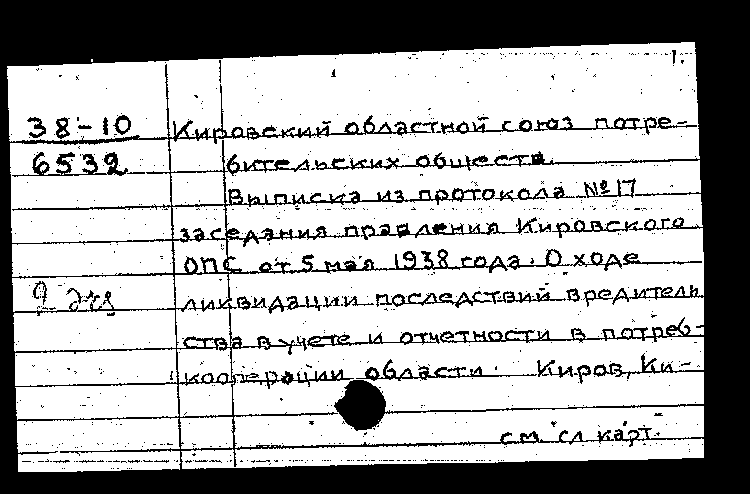 1.
38-10 Кировский областной союз потре-
6532 бительских обществ.
Выписка из протокола №17
заседания правления Кировского
ОПС от 5 мая 1938 года. О ходе
2 экз ликвидации последствий вредитель
ства в учете и отчетности в потреб-
кооперации области. Киров, Ки-
см. сл. карт.